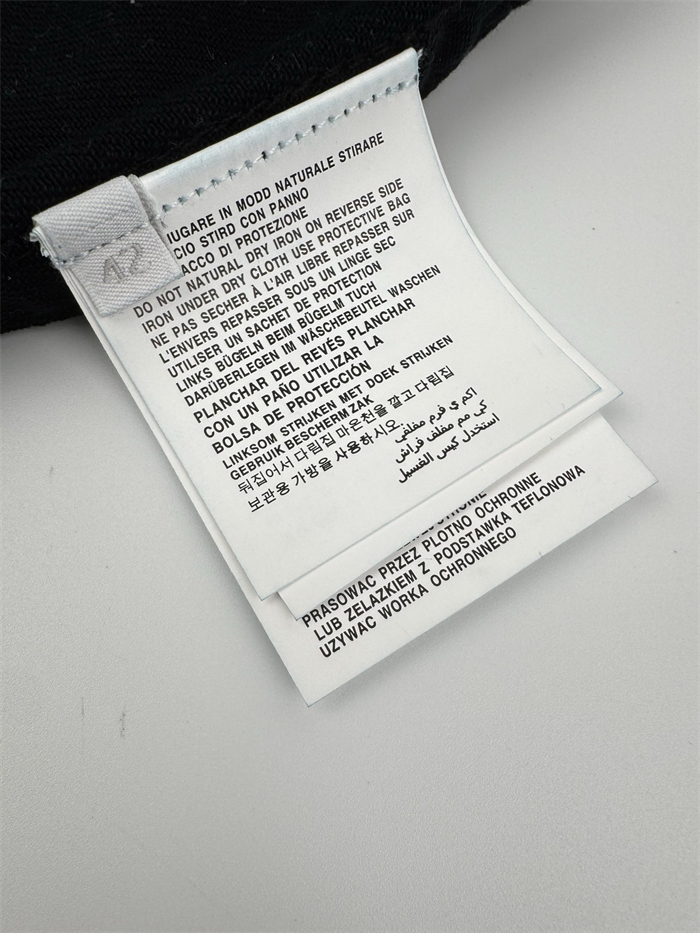 42
IUGARE IN MODD NATURALE STIRARE
CIO STIRD CON PANNO
ACCO DI PROTEZIONE
DO NOT NATURAL DRY IRON ON REVERSE SIDE
IRON UNDER DRY CLOTH USE PROTECTIVE BAG
NE PAS SECHER À L'AIR LIBRE REPASSER SUR
L'ENVERS REPASSER SOUS UN LINGE SEC
UTILISER UN SACHET DE PROTECTION
LINKS BÜGELN BEIM BÜGELM TUCH
DARÜBERLEGEN IM WÄSCHEBEUTEL WASCHEN
PLANCHAR DEL REVÉS PLANCHAR
CON UN PAÑO UTILIZAR LA
BOLSA DE PROTECCIÓN
LINKSOM STRIJKEN MET DOEK STRIJKEN
GEBRUIK BESCHERMZAK
뒤집어서 다림질 마은천을 깔고 다림집
보관용 가방을 사용하시오
اكم ي فرم مغلني
كي مم مغلف فراش
استخدل كيس الغسيل
PRASOWAC PRZEZ PLOTNO OCHRONNE
LUB ZELAZKIEM Z PODSTAWKA TEFLONOWA
UZYWAC WORKA OCHRONNEGO